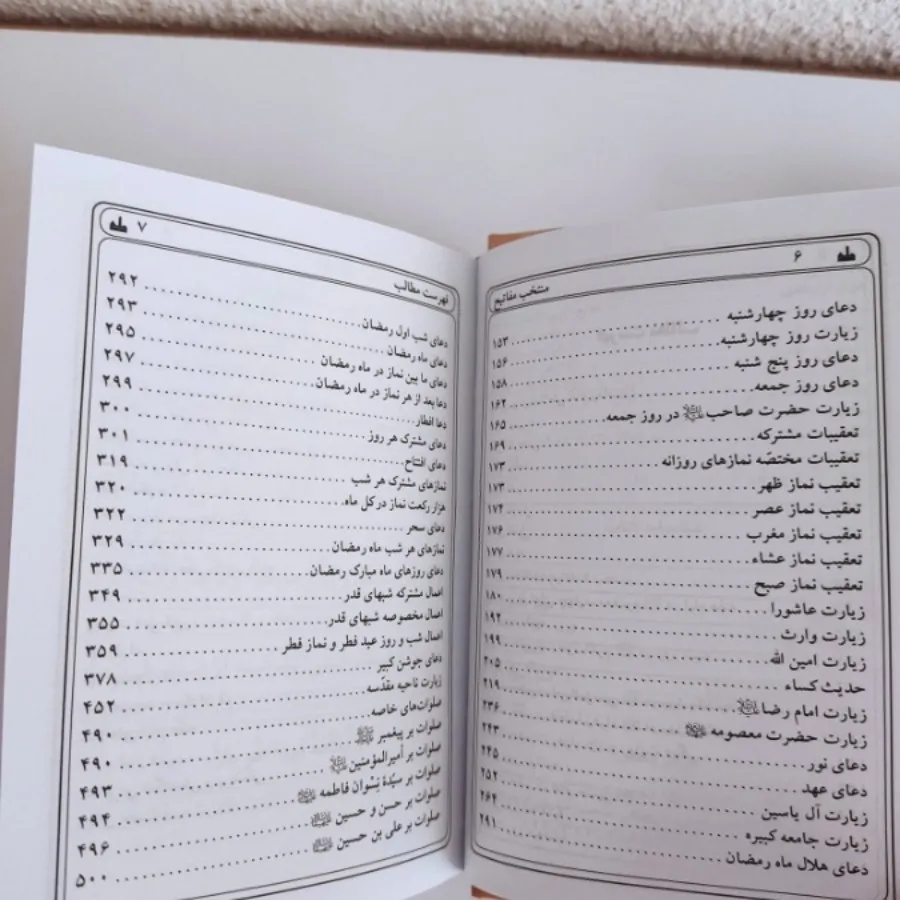 ۶
منتخب مفاتیح
دعای روز چهارشنبه ۱۵۳
زیارت روز چهارشنبه ۱۵۶
دعای روز پنج شنبه ۱۵۸
دعای روز جمعه ۱۶۲
زیارت حضرت صاحب در روز جمعه ۱۶۵
تعقیبات مشترکه ۱۶۹
تعقیبات مختصّه نمازهای روزانه ۱۷۳
تعقیب نماز ظهر ۱۷۳
تعقیب نماز عصر ۱۷۴
تعقیب نماز مغرب ۱۷۶
تعقیب نماز عشاء ۱۷۷
تعقیب نماز صبح ۱۷۹
زیارت عاشورا ۱۸۰
زیارت وارث ۱۹۲
زیارت امین الله ۱۹۹
حدیث کساء ۲۰۵
زیارت امام رضا ۲۱۹
زیارت حضرت معصومه ۲۳۶
دعای نور ۲۴۳
دعای عهد ۲۴۵
زیارت آل یاسین ۲۵۲
زیارت جامعه کبیره ۲۶۴
دعای هلال ماه رمضان ۲۹۱
۷
فهرست مطالب
دعای شب اول رمضان ۲۹۲
دعای ماه رمضان ۲۹۳
دعای ما بین نماز در ماه رمضان ۲۹۵
دعا بعد از هر نماز در ماه رمضان ۲۹۷
دعا افطار ۲۹۹
دعای مشترک هر روز ۳۰۰
دعای افتتاح ۳۰۱
نمازهای مشترک هر شب ۳۱۹
هزار رکعت نماز در کل ماه ۳۲۰
دعای سحر ۳۲۲
نمازهای هر شب ماه رمضان ۳۲۹
دعای روزهای ماه مبارک رمضان ۳۳۵
اعمال مشترکه شبهای قدر ۳۴۹
اعمال مخصوصه شبهای قدر ۳۵۵
اعمال شب و روز عید فطر و نماز فطر ۳۵۹
دعای جوشن کبیر ۳۷۸
زیارت ناحیه مقدّسه ۴۵۲
صلوات‌های خاصه ۴۹۰
صلوات بر پیغمبر ۴۹۰
صلوات بر أمیرالمؤمنین ۴۹۳
صلوات بر سیّدۀ نِسْوان فاطمه ۴۹۴
صلوات بر حسن و حسین ۴۹۶
صلوات بر علی بن حسین ۵۰۰